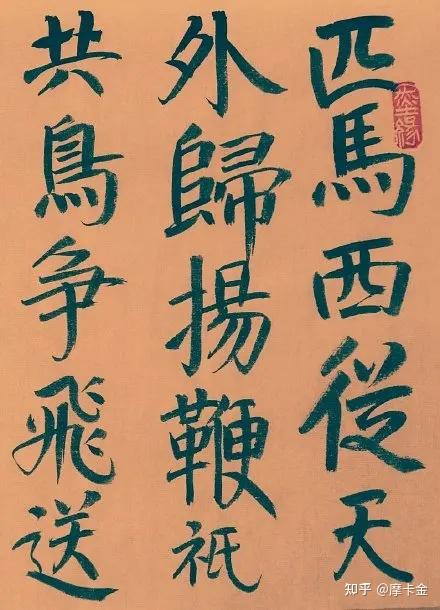 匹馬西從天
外歸揚鞭祇
共鳥争飛送
知乎 @摩卡金